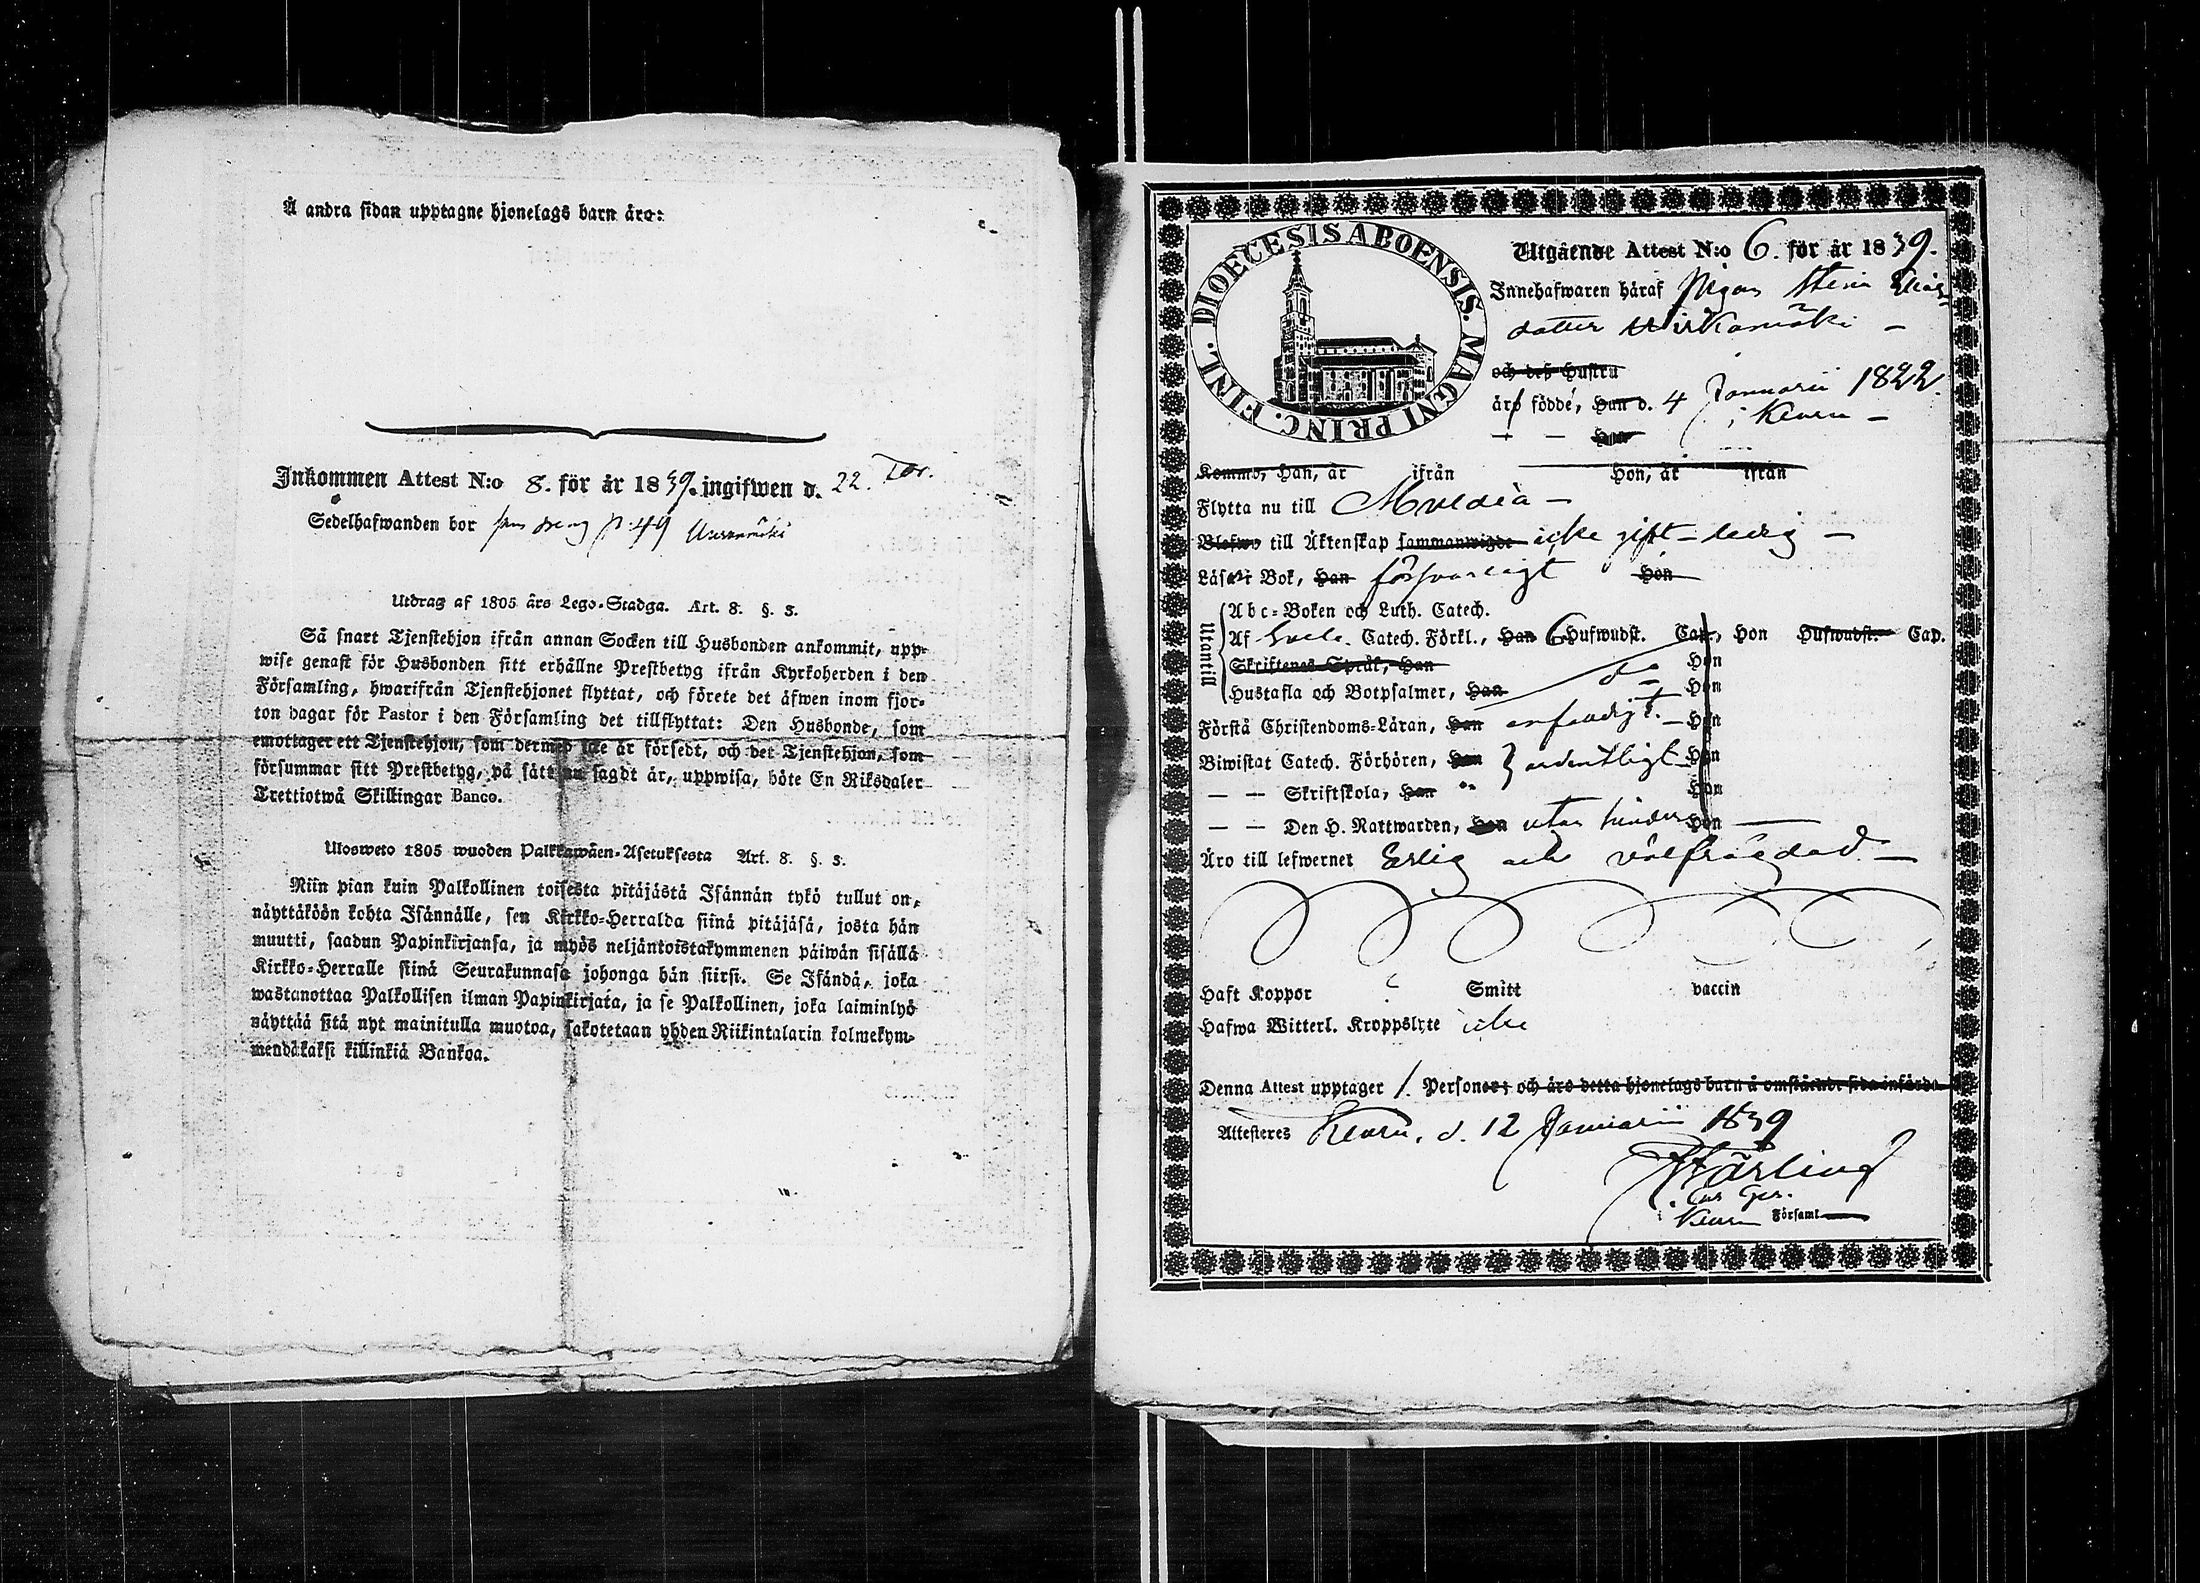 Å andra sidan upptagne hjonelags barn äro:
Inkommen Attest N:o 8. för år 1839. ingifwen d. 22.
Sedelhafwanden bor p. 49
Utdrag af 1805 års Lego-Stadga. Art. 8. §. 3.
Så snart Tjenstehjon ifrån annan Socken till Husbonden ankommit, upp-
wise genast för Husbonden sitt erhållne Prestbetyg ifrån Kyrkoherden i den
Församling, hwarifrån Tjenstehjonet flyttat, och förete det äfwen inom fjor-
ton dagar för Pastor i den Församling det tillflyttat: Den Husbonde, som
emottager ett Tjenstehjon, som dermed icke är försedt, och det Tjenstehjon, som
försummar sitt Prestbetyg, på sätt nu sagdt är, uppwisa, böte En Riksdaler
Trettiotwå Skillingar Banco.
Ulosweto 1805 wuoden Palkkawäen-Asetuksesta Art. 8. §. 3.
Niin pian kuin Palkollinen toisesta pitäjästä Isännän tykö tullut on,
näyttäköön kohta Isännälle, sen Kirkko-Herralda siinä pitäjäsä, josta hän
muutti, saadun Papinkirjansa, ja myös neljäntoistakymmenen päiwän sisällä
Kirkko-Herralle siinä Seurakunnasa johonga hän siirsi. Se Isändä, joka
wastanottaa Palkollisen ilman Papinkirjata, ja se Palkollinen, joka laiminlyö
näyttää sitä nyt mainitulla muotoa, sakotetaan yhden Riikintalarin kolmekym-
mendäkaksi killinkiä Bankoa.
DIOECESIS ABOENSIS. MAGNI PRINC. FINL.
Utgående Attest N:o 6. för år 1839.
Innehafwaren häraf Pigan Stina Elias
dotter
och deß Hustru
äro födde, Han d. 4 Januarii 1822.
i Keuru
— — Hon
Kommo, Han, år ifrån Hon, år ifrån
Flytta nu till Muldia
Blefwo till Äktenskap sammanwigde icke gift - ledig
Läsa i Bok, Han försvarligt Hon
Utantill
Abc-Boken och Luth. Catech.
Af Catech. Förkl., Han 6 Hufwudst. Cap., Hon Hufwudst. Cap.
Skriftenes Språk, Han Hon
Hustafla och Botpsalmer, Han Hon
Förstå Christendoms-Läran, Han Hon
Biwistat Catech. Förhören, Han ordentligt Hon
— — Skriftskola, Han Hon
— — Den H. Nattwarden, Han utan hinder Hon
Äro till lefwernet Ärlig och välfrägdad
Haft Koppor ? Smitt vaccin
Hafwa Witterl. Kroppslyte icke
Denna Attest upptager 1. Personer; och äro detta hjonelags barn å omstående sida införde.
Attesteres Keuru, d. 12 Januarii 1839
i Keuru Församl